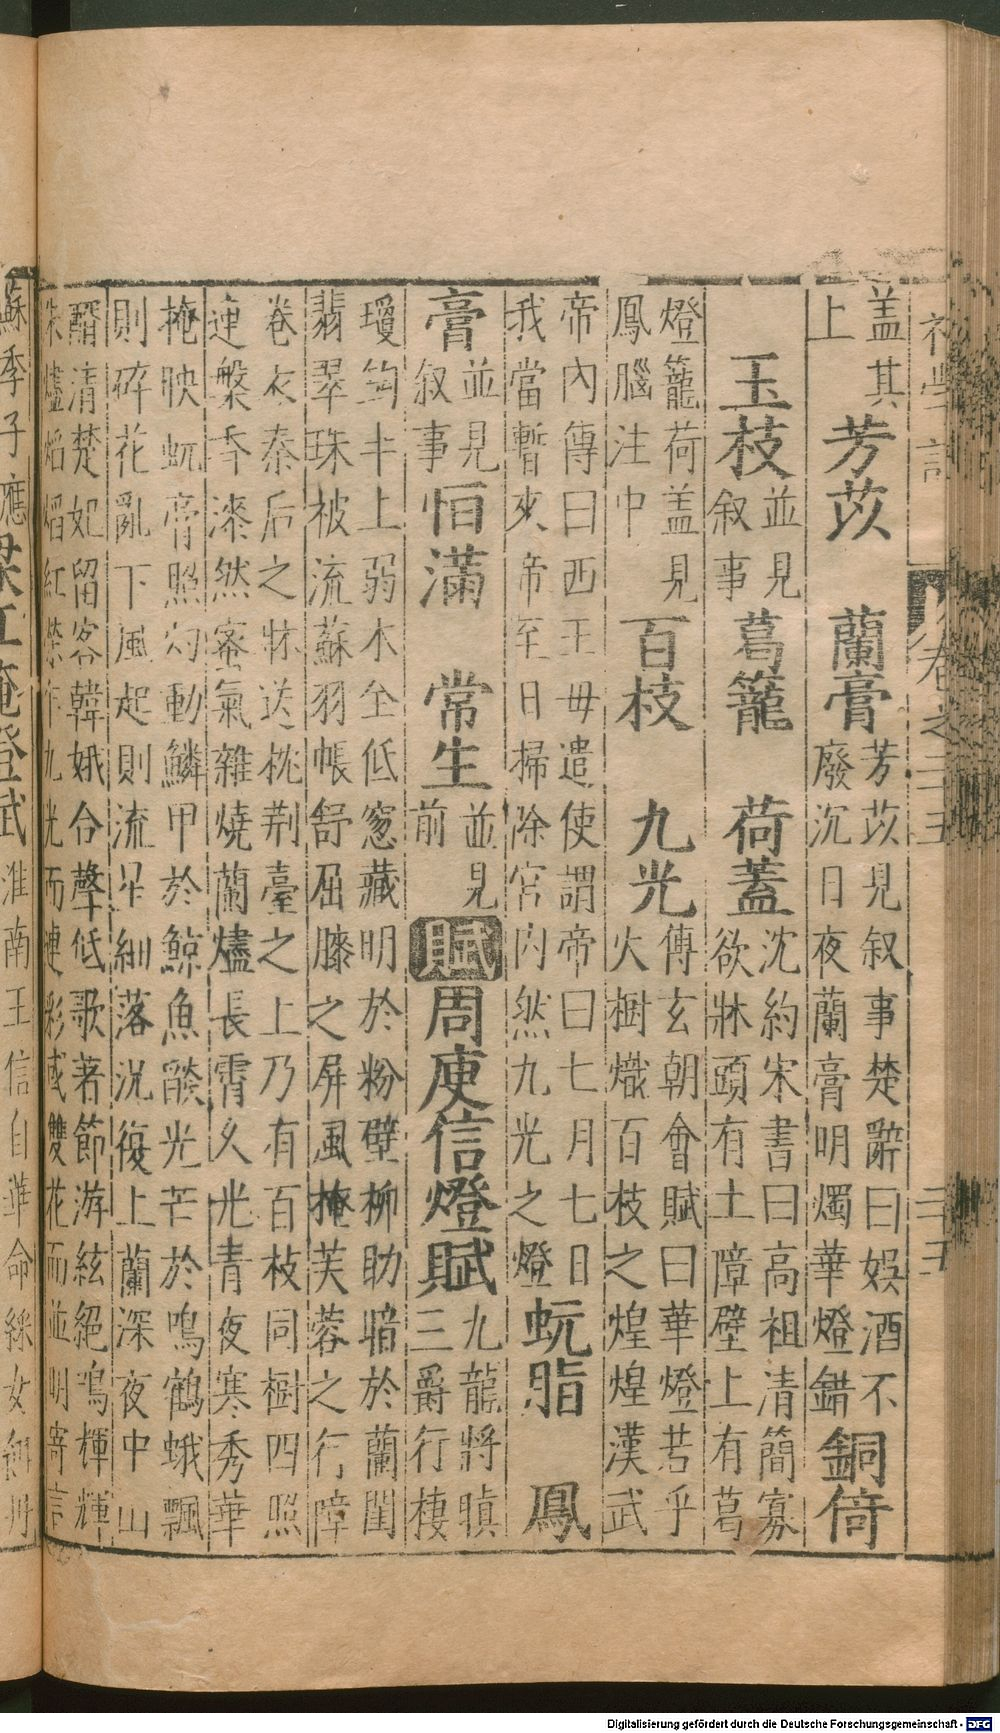 初學記 卷之二五 三五
蓋其上 芳苡 蘭膏 芳苡見叙事楚辭曰娛酒不廢沉日夜蘭膏明燭華燈錯 銅倚
玉枝 並見叙事 葛籠 荷蓋 沈約宋書曰高祖清簡寡欲牀頭有土障壁上有葛
燈籠荷蓋見鳳腦注中 百枝 九光 傅玄朝會賦曰華燈若乎火樹熾百枝之煌煌漢武
帝內傳曰西王母遣使謂帝曰七月七日我當暫來帝至日掃除宮內然九光之燈 蚖脂 鳳
膏 並見叙事 恒滿 常生 並見前 賦 周庾信燈賦 九龍將暝三爵行棲
瓊鈎半上弱木全低窓藏明於粉壁柳助暗於蘭閨翡翠珠被流蘇羽帳舒屈膝之屏風掩芙蓉之行障
卷衣秦后之牀送枕荆臺之上乃有百枝同樹四照連盤香添然蜜氣雜燒蘭燼長宵久光青夜寒秀華
掩映蚖膏照灼動鱗甲於鯨魚燄光芒於鳴鶴蛾飄則碎花亂下風起則流星細落況復上蘭深夜中山
醑清楚妃留客韓娥合聲低歌著節游絃絕鳴輝輝朱燼焰焰紅榮乍九光而連彩或雙花而並明寄言
蘇季子應 梁江淹燈賦 淮南王信自華命綵女餌丹